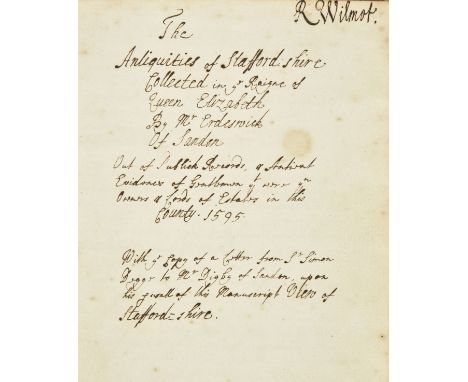 R Wilmot.
The
Antiquities of Stafford-shire
Collected in yͤ Raigne of
Queen Elizabeth
By Mͬ Erdeswick
Of Sandon
Out of Publick Records, & Antient
Evidences of Gentlemen yͭ were yͤn
Owners & Lords of Estates in this
County. 1595.
With yͤ Copy of a Letter from Sͬ Simon
Degge to Mͬ Digby of Sandon, upon
his perusall of this Manuscript View of
Stafford=shire.